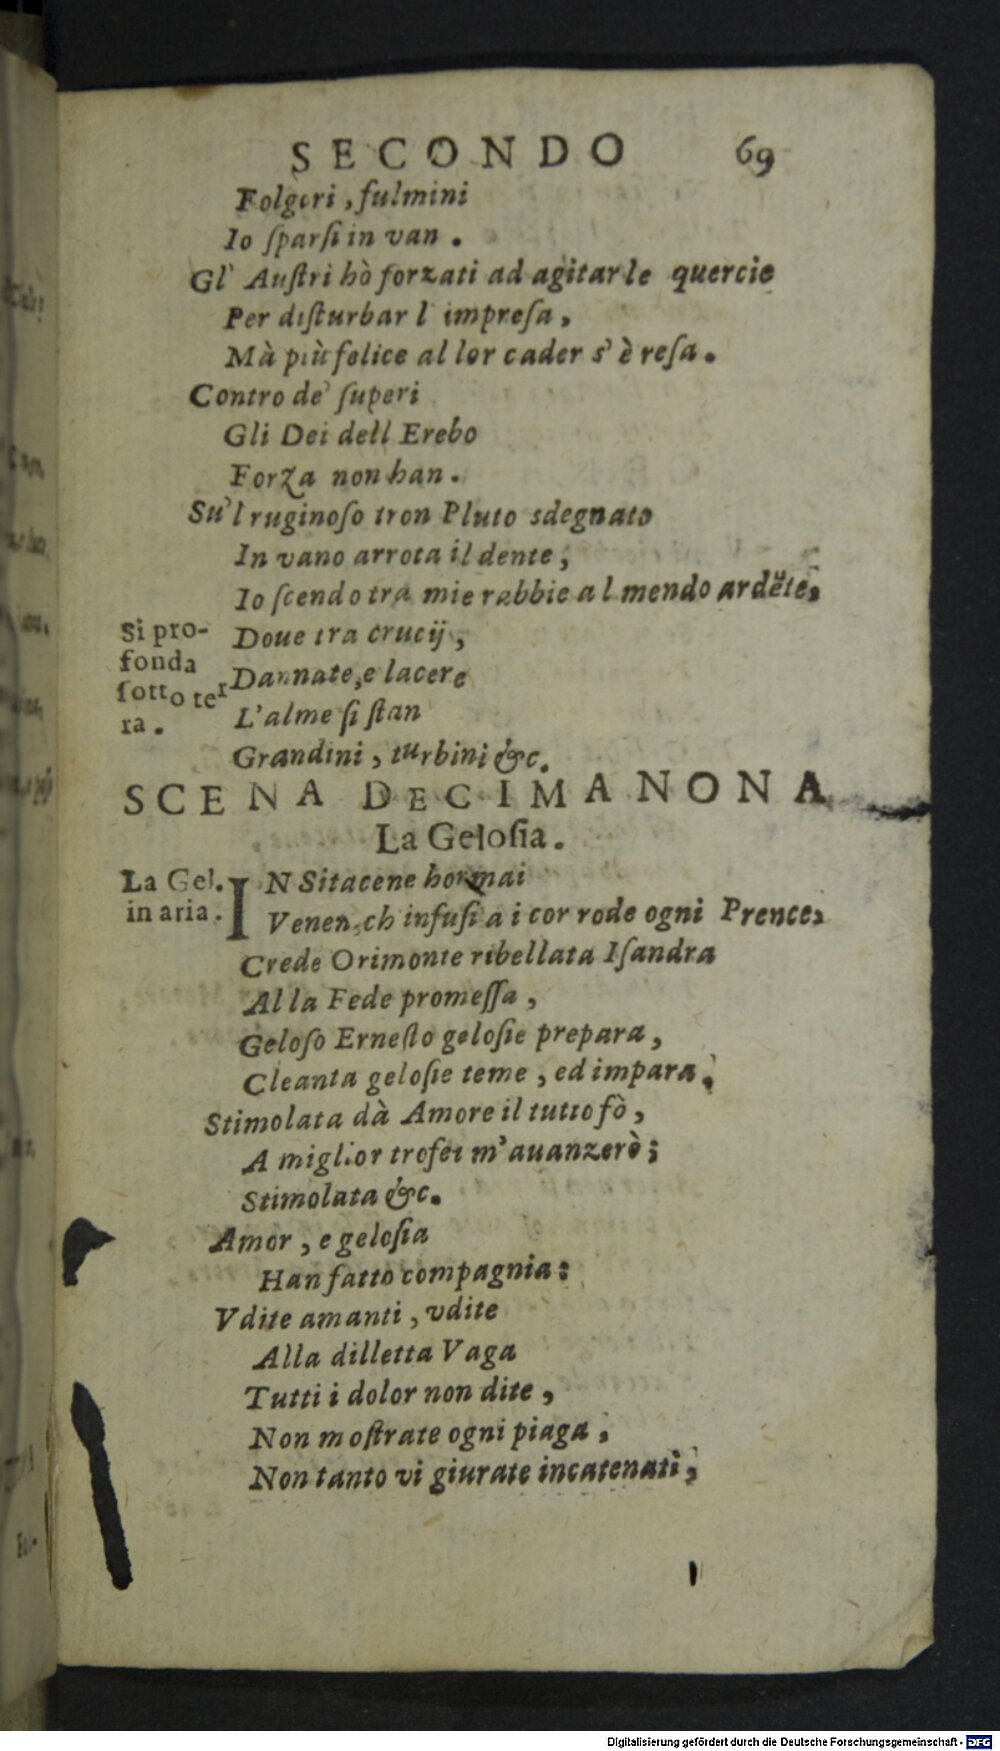 SECONDO 69
Folgori, fulmini
Io sparsi in van.
Gl' Austri hò forzati ad agitar le quercie
Per disturbar l' impresa,
Mà più felice al lor cader s'è resa.
Contro de' superi
Gli Dei dell Erebo
Forza non han.
Su'l ruginoso tron Pluto sdegnato
In vano arrota il dente,
Io scendo tra mie rabbie al mondo ardẽte,
Si pro-
fonda
sotto ter
ra.
Doue tra crucij,
Dannate, e lacere
L'alme si stan
Grandini, turbini &c.
SCENA DECIMANONA
La Gelosia.
La Gel.
in aria.
IN Sitacene hormai
Venen, ch infusi a i cor rode ogni Prence,
Crede Orimonte ribellata Isandra
Alla Fede promessa,
Geloso Ernesto gelosie prepara,
Cleanta gelosie teme, ed impara,
Stimolata dà Amore il tutto fò,
A miglior trofei m'auanzerò;
Stimolata &c.
Amor, e gelosia
Han fatto compagnia:
Vdite amanti, vdite
Alla dilletta Vaga
Tutti i dolor non dite,
Non mostrate ogni piaga,
Non tanto vi giurate incatenati,
Digitalisierung gefördert durch die Deutsche Forschungsgemeinschaft - DFG